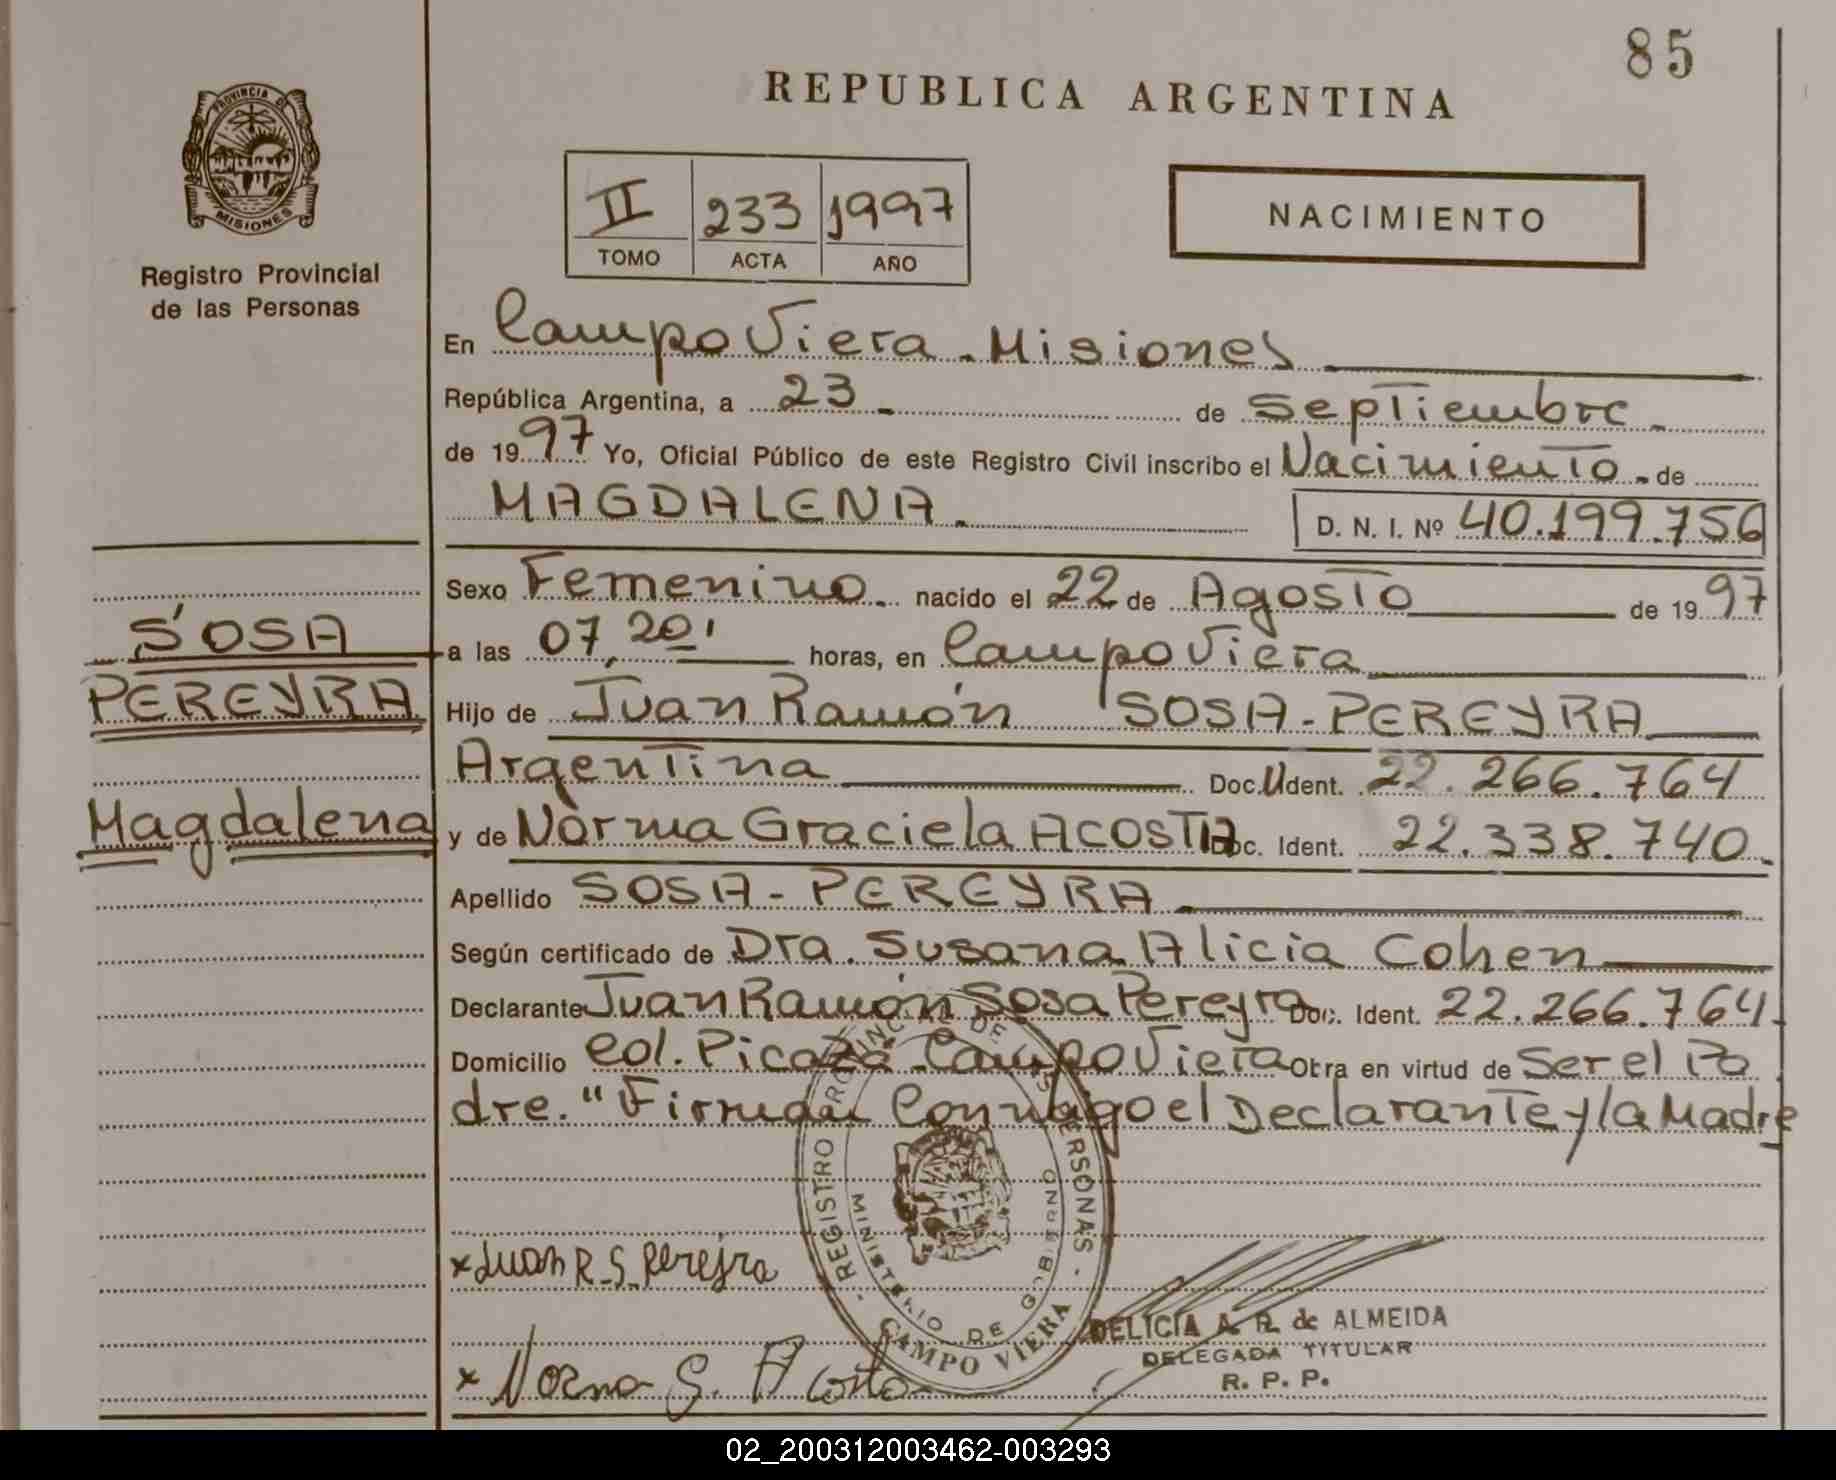 85
REPUBLICA ARGENTINA
PROVINCIA DE
MISIONES
Registro Provincial
de las Personas
II 233 1997
TOMO ACTA AÑO
NACIMIENTO
En Campo Viera - Misiones
República Argentina, a 23 - de Septiembre -
de 1997 Yo, Oficial Público de este Registro Civil inscribo el Nacimiento - de
MAGDALENA - D. N. I. Nº 40.199.756
Sexo Femenino - nacido el 22 de Agosto de 1997
SOSA
a las 07,20' horas, en Campo Viera
PEREYRA
Hijo de Juan Ramón SOSA-PEREYRA
Argentina Doc. U Ident. 22.266.764
Magdalena
y de Norma Graciela ACOSTA Doc. Ident. 22.338.740.
Apellido SOSA - PEREYRA
Según certificado de Dra. Susana Alicia Cohen
Declarante Juan Ramón Sosa Pereyra Doc. Ident. 22.266.764
Domicilio Col. Picaza - Campo Viera Obra en virtud de Ser el Pa
dre. "Firman Conmigo el Declarante y la Madre
REGISTRO PROVINCIAL DE LAS PERSONAS - CAMPO VIERA
MINISTERIO DE GOBIERNO
x Juan R. S. Pereyra
DELICIA A. R. de ALMEIDA
DELEGADA TITULAR
R. P. P.
x Norma G. Acosta
02_200312003462-003293